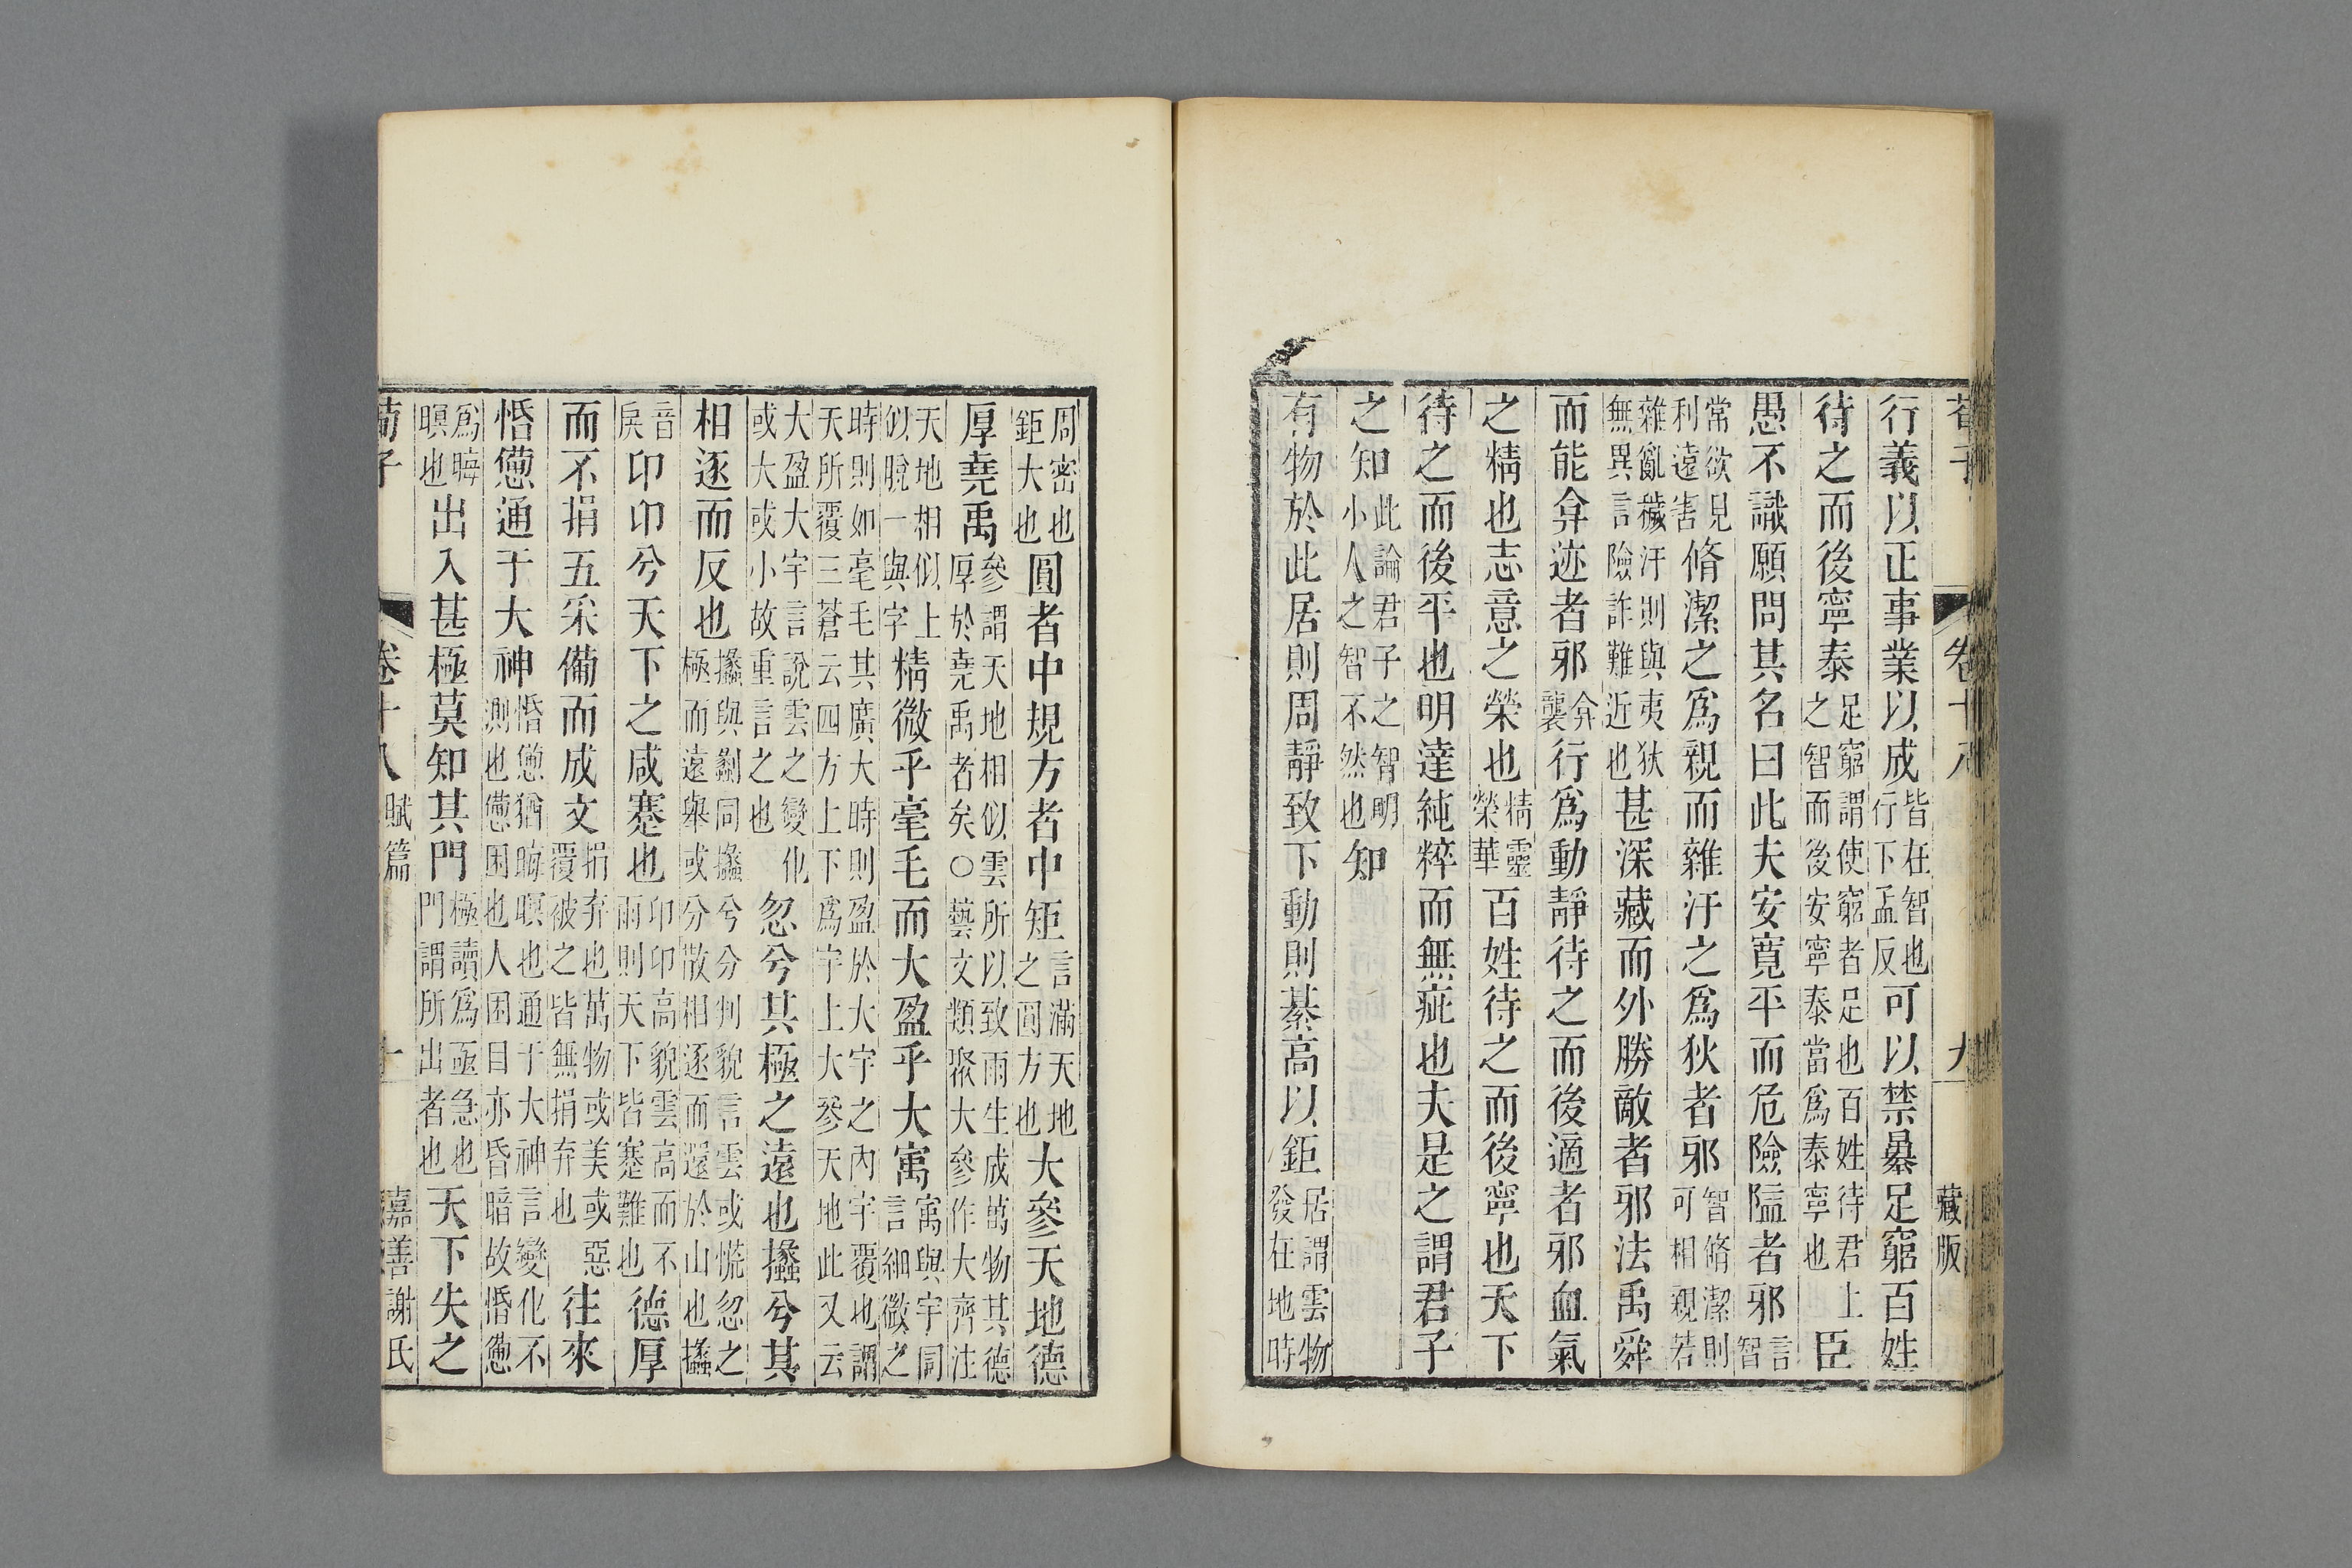 荀子 卷十八 九 藏版
行義以正事業以成皆在智也行下孟反可以禁暴足窮百姓
待之而後寧泰足窮謂使窮者足也百姓待君上之智而後安寧泰當爲泰寧也臣
愚不識願問其名曰此夫安寬平而危險隘者邪言智
常欲見利遠害脩潔之爲親而雜汙之爲狄者邪智脩潔則可相親若
雜亂穢汙則與夷狄無異言險詐難近也甚深藏而外勝敵者邪法禹舜
而能弇迹者邪弇襲行爲動靜待之而後適者邪血氣
之精也志意之榮也精靈榮華百姓待之而後寧也天下
待之而後平也明達純粹而無疵也夫是之謂君子
之知此論君子之智明小人之智不然也知
有物於此居則周靜致下動則綦高以鉅居謂雲物發在地時
周密也鉅大也圓者中規方者中矩言滿天地之圓方也大參天地德
厚堯禹參謂天地相似雲所以致雨生成萬物其德厚於堯禹者矣○藝文類聚大參作大齊注
天地相似上似脫一與字精微乎毫毛而大盈乎大寓寓與宇同言細微之
時則如毫毛其廣大時則盈於大宇之內宇覆也謂天所覆三蒼云四方上下爲宇上大參天地此又云
大盈大宇言說雲之變化或大或小故重言之也忽兮其極之遠也攭兮其
相逐而反也攭與劙同攭兮分判貌言雲或慌忽之極而遠舉或分散相逐而還於山也攭
音戾卬卬兮天下之咸蹇也卬卬高貌雲高而不雨則天下皆蹇難也德厚
而不捐五采備而成文捐弃也萬物或美或惡覆被之皆無捐弃也往來
惛憊通于大神惛憊猶晦暝也通于大神言變化不測也憊困也人困目亦昏暗故惛憊
爲晦暝也出入甚極莫知其門極讀爲亟急也門謂所出者也天下失之
荀子 卷十八 賦篇 嘉善謝氏